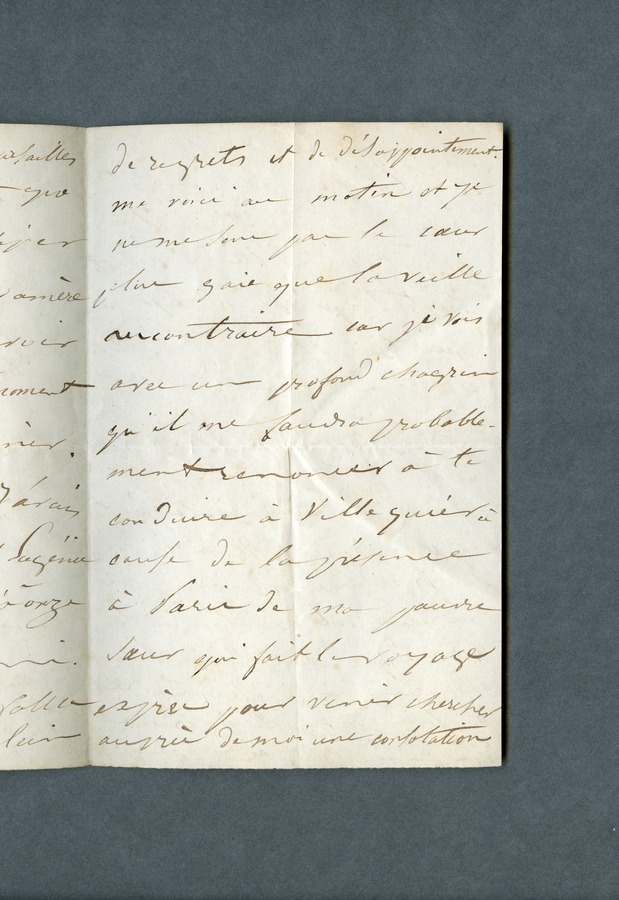 ersailles
que
amère
voir
moment
ner.
Eugénie
onze
de regrets et de désappointement.
me voici au matin et je
ne me sens pas le cœur
plus gaie que la veille
au contraire car je vois
avec un profond chagrin
qu'il me faudra probable-
ment renoncer à te
conduire à Villequier à
cause de la présence
à Paris de ma pauvre
sœur qui fait le voyage
exprès pour venir chercher
auprès de moi une consolation